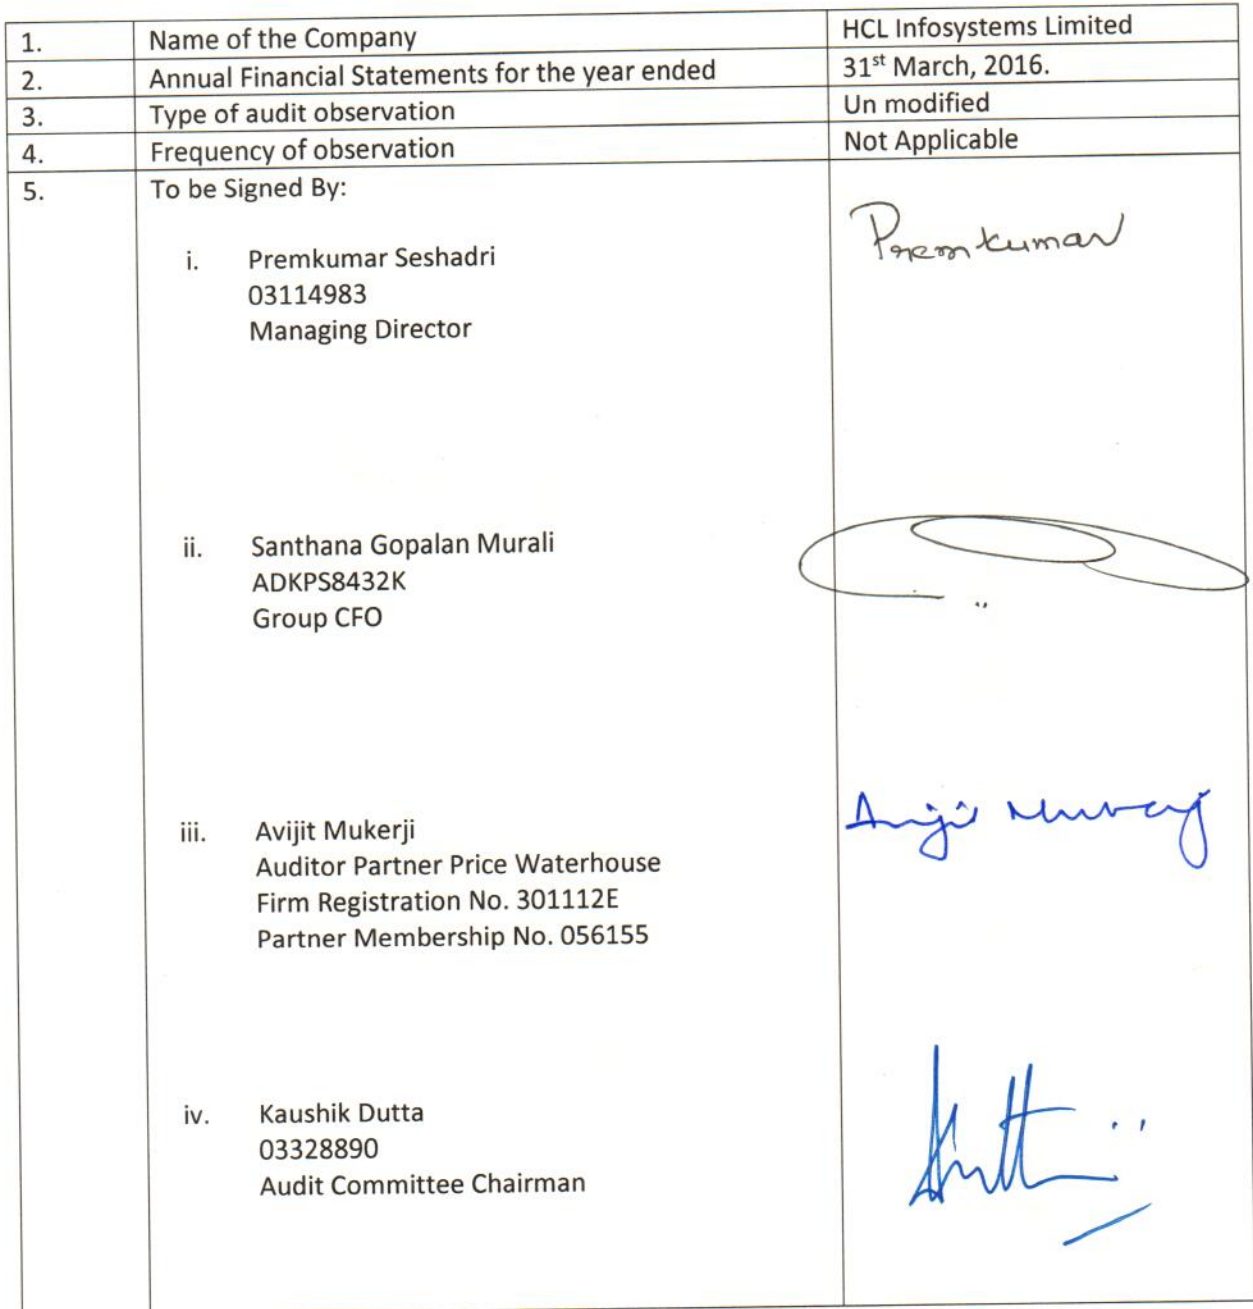 1. Name of the Company HCL Infosystems Limited
2. Annual Financial Statements for the year ended 31st March, 2016.
3. Type of audit observation Un modified
4. Frequency of observation Not Applicable
5. To be Signed By:
Premkumar
i. Premkumar Seshadri
03114983
Managing Director
ii. Santhana Gopalan Murali
ADKPS8432K
Group CFO
iii. Avijit Mukerji
Auditor Partner Price Waterhouse
Firm Registration No. 301112E
Partner Membership No. 056155
iv. Kaushik Dutta
03328890
Audit Committee Chairman